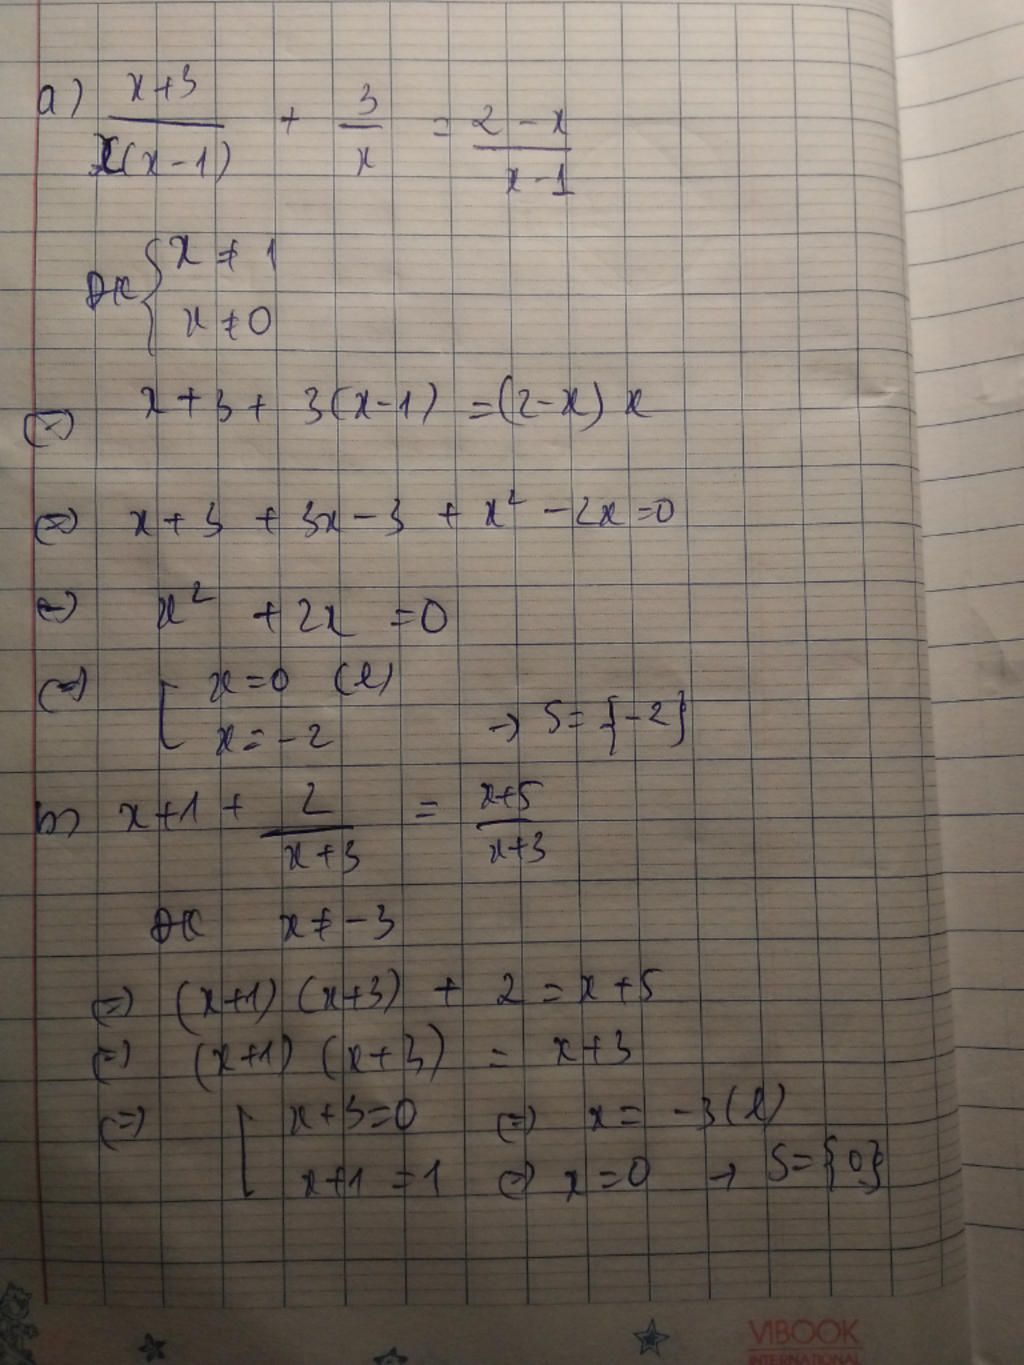 a) \frac{x+3}{x(x-1)} + \frac{3}{x} = \frac{2-x}{x-1}
ĐK { x ≠ 1
x ≠ 0
(=) x+3+ 3(x-1) =(2-x) x
(=) x+3 + 3x-3 + x² -2x=0
(=) x² +2x =0
(=) [ x=0 (l)
x=-2 → S= {-2}
b) x+1 + \frac{2}{x+3} = \frac{x+5}{x+3}
ĐK x ≠ -3
(=) (x+1) (x+3) + 2 = x+5
(=) (x+1) (x+3) = x+3
(=) [ x+3=0 (=) x= -3(l)
x+1 =1 (=) x=0 → S={0}
VIBOOK
INTERNATIONAL